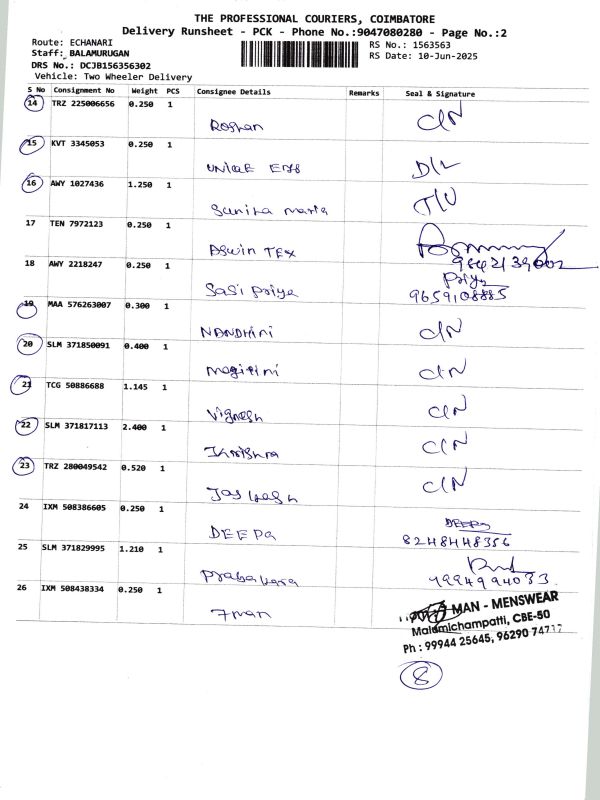 THE PROFESSIONAL COURIERS, COIMBATORE
Delivery Runsheet - PCK - Phone No.:9047080280 - Page No.:2
Route: ECHANARI
RS No.: 1563563
Staff: BALAMURUGAN
RS Date: 10-Jun-2025
DRS No.: DCJB156356302
Vehicle: Two Wheeler Delivery
S No Consignment No Weight PCS Consignee Details Remarks Seal & Signature
14 TRZ 225006656 0.250 1
Roshan C/N
15 KVT 3345053 0.250 1
UNIQE D/L
16 AWY 1027436 1.250 1
Sunitha maria
17 TEN 7972123 0.250 1
Aswin TEX
9842139002
18 AWY 2218247 0.250 1
Priya
Sasi Priya 9659108885
19 MAA 576263007 0.300 1
NANDHINI C/N
20 SLM 371850091 0.400 1
C/N
21 TCG 50886688 1.145 1
Vignesh C/N
22 SLM 371817113 2.400 1
Krishna C/N
23 TRZ 280049542 0.520 1
C/N
24 IXM 508386605 0.250 1
DEEPA
DEEPA 8248448356
25 SLM 371829995 1.210 1
Prabakara 9994994033
26 IXM 508438334 0.250 1
7man
MAN - MENSWEAR
Malumichampatti, CBE-50
Ph : 99944 25645, 96290 74717
8